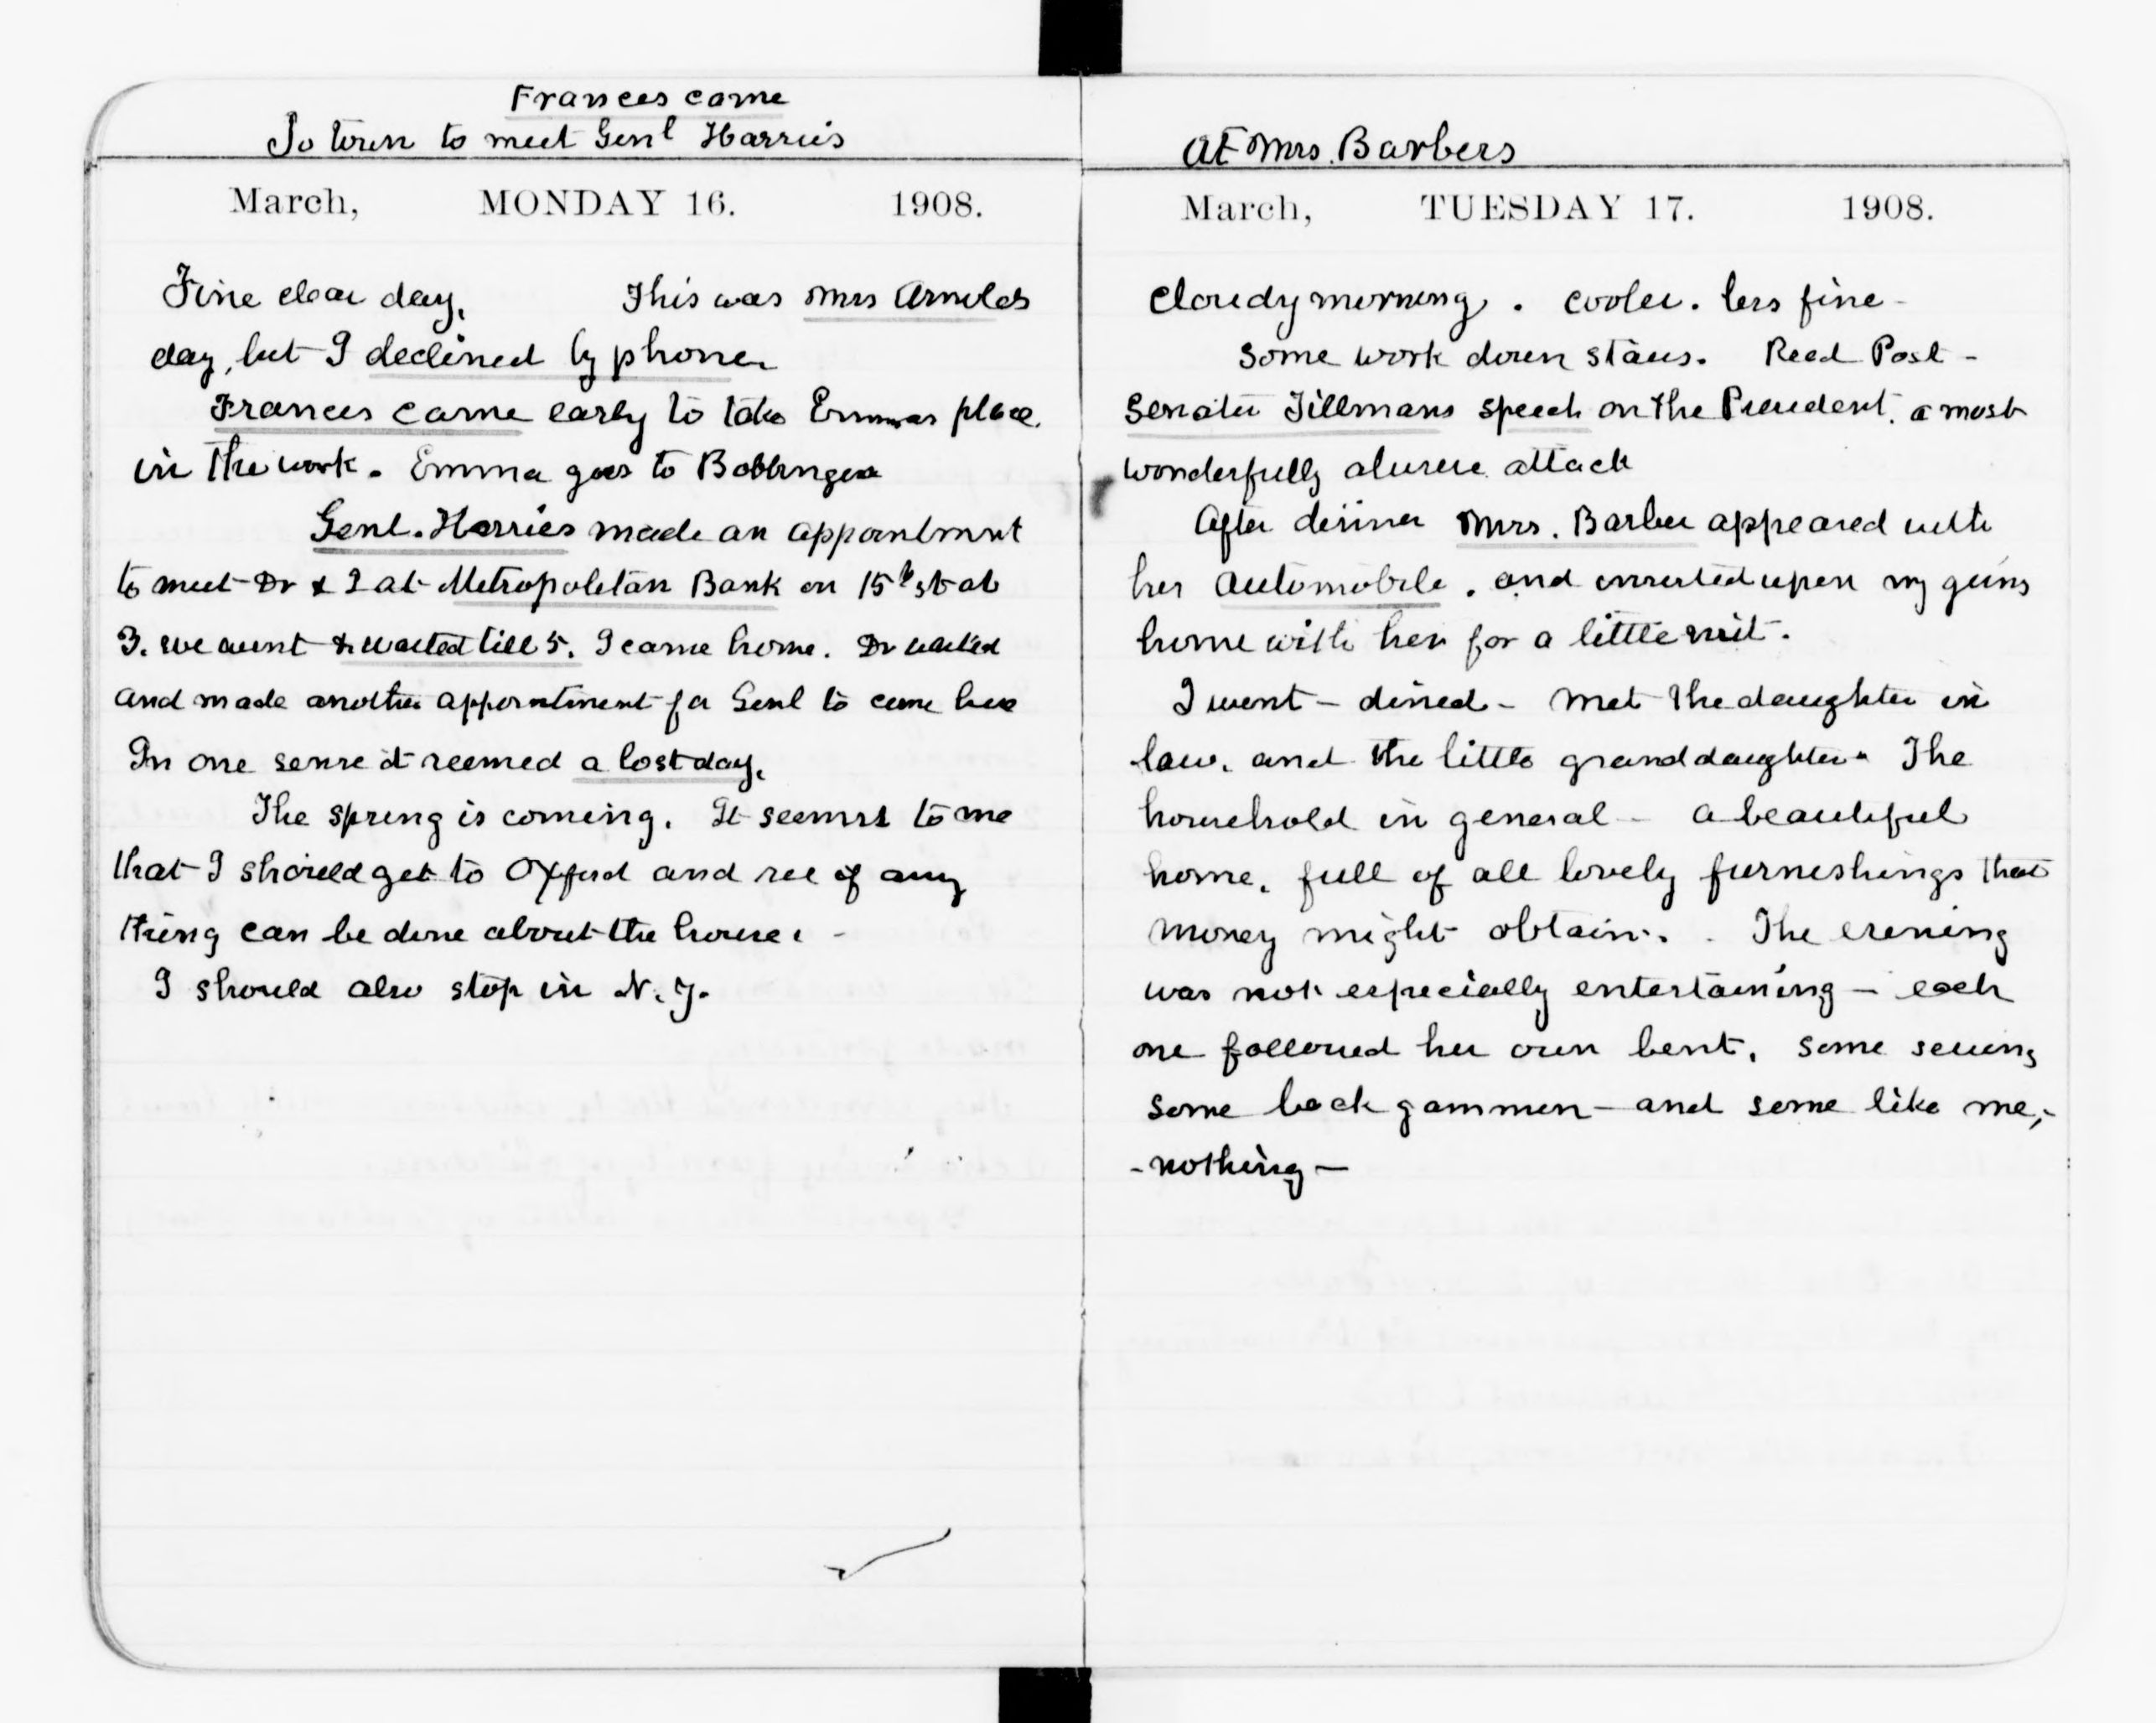 Frances came
To town to meet Genl Harries
March, MONDAY 16. 1908.
Fine clear day. This was Mrs Arnolds
day, but I declined by phone
Frances came early to take Emmas place
in the work. Emma goes to
Genl. Harries made an appointment
to meet Dr & I at Metropolitan Bank on 15th st at
3. we went & waited till 5. I came home. Dr waited
and made another appointment for Genl to come here
In one sense it seemed a lost day.
The spring is coming. It seems to me
that I should get to Oxford and see if any
thing can be done about the house. -
I should also stop in N.Y.
At Mrs. Barbers
March, TUESDAY 17. 1908.
Cloudy morning. cooler. less fine -
Some work down stairs. Read Post -
Senator Tillmans speech on the President. a most
wonderfully abusive attack
After dinner Mrs. Barber appeared with
her automobile. and insisted upon my going
home with her for a little visit.
I went - dined - met the daughter in
law. and the little granddaughter. The
household in general - a beautiful
home. full of all lovely furnishings that
money might obtain. . The evening
was not especially entertaining - each
one followed her own bent. some sewing
some back gammon - and some like me, -
- nothing -